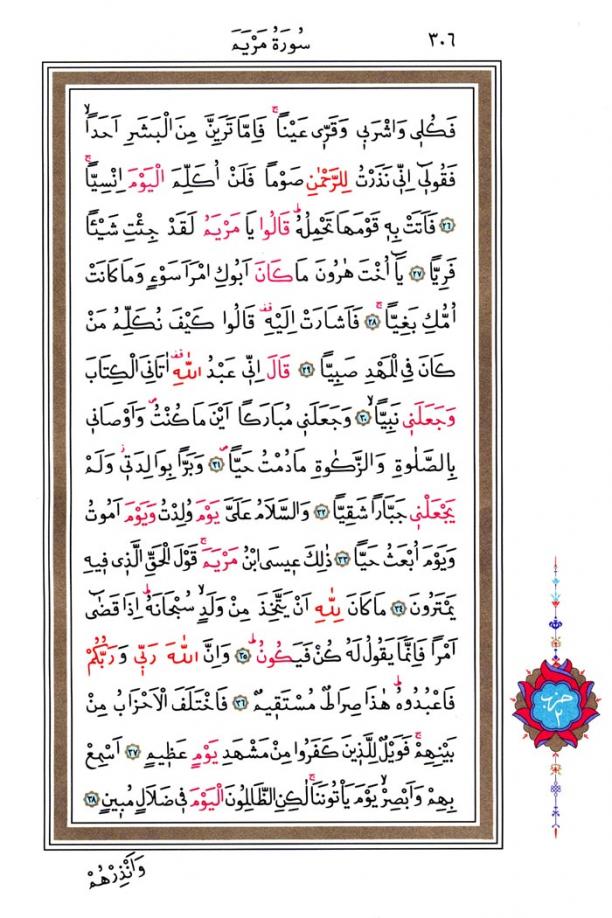 ٣٠٦ سُورَةُ مَرْيَمَ
فَكُلِي وَاشْرَبِي وَقَرِّي عَيْناًۚ فَاِمَّا تَرَيِنَّ مِنَ الْبَشَرِ اَحَداًۙ
فَقُولِٓي اِنِّي نَذَرْتُ لِلرَّحْمٰنِ صَوْماً فَلَنْ اُكَلِّمَ الْيَوْمَ اِنْسِياًّۚ
﴿٢٦﴾ فَاَتَتْ بِه۪ قَوْمَهَا تَحْمِلُهُۜ قَالُوا يَا مَرْيَمُ لَقَدْ جِئْتِ شَيْـٔاً
فَرِياًّ ﴿٢٧﴾ يَٓا اُخْتَ هٰرُونَ مَا كَانَ اَبُوكِ امْرَاَ سَوْءٍ وَمَا كَانَتْ
اُمُّكِ بَغِياًّۚ ﴿٢٨﴾ فَاَشَارَتْ اِلَيْهِۜ قَالُوا كَيْفَ نُكَلِّمُ مَنْ
كَانَ فِي الْمَهْدِ صَبِياًّ ﴿٢٩﴾ قَالَ اِنِّي عَبْدُ اللّٰهِۜ اٰتَانِيَ الْكِتَابَ
وَجَعَلَنِي نَبِياًّۙ ﴿٣٠﴾ وَجَعَلَنِي مُبَارَكاً اَيْنَ مَا كُنْتُۖ وَاَوْصَانِي
بِالصَّلٰوةِ وَالزَّكٰوةِ مَا دُمْتُ حَياًّۖ ﴿٣١﴾ وَبَراًّ بِوَالِدَتِيۘ وَلَمْ
يَجْعَلْنِي جَبَّاراً شَقِياًّ ﴿٣٢﴾ وَالسَّلَامُ عَلَيَّ يَوْمَ وُلِدْتُ وَيَوْمَ اَمُوتُ
وَيَوْمَ اُبْعَثُ حَياًّ ﴿٣٣﴾ ذٰلِكَ عِيسَى ابْنُ مَرْيَمَۚ قَوْلَ الْحَقِّ الَّذِي فِيهِ
يَمْتَرُونَ ﴿٣٤﴾ مَا كَانَ لِلّٰهِ اَنْ يَتَّخِذَ مِنْ وَلَدٍۙ سُبْحَانَهُۜ اِذَا قَضٰٓى
اَمْراً فَاِنَّمَا يَقُولُ لَهُ كُنْ فَيَكُونُۜ ﴿٣٥﴾ وَاِنَّ اللّٰهَ رَبِّي وَرَبُّكُمْ
فَاعْبُدُوهُۜ هٰذَا صِرَاطٌ مُسْتَقِيمٌ ﴿٣٦﴾ فَاخْتَلَفَ الْاَحْزَابُ مِنْ
بَيْنِهِمْۚ فَوَيْلٌ لِلَّذِينَ كَفَرُوا مِنْ مَشْهَدِ يَوْمٍ عَظِيمٍ ﴿٣٧﴾ اَسْمِعْ
بِهِمْ وَاَبْصِرْۙ يَوْمَ يَأْتُونَنَاۚ لٰكِنِ الظَّالِمُونَ الْيَوْمَ فِي ضَلَالٍ مُبِينٍ ﴿٣٨﴾
وَاَنْذِرْهُمْ
حزب
٢